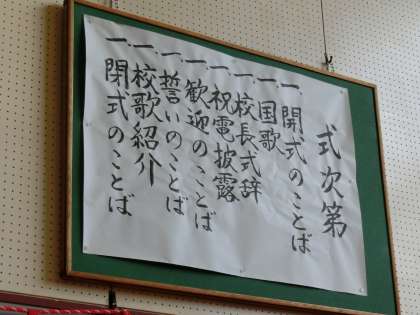 式次第
一、開式のことば
一、国歌
一、校長式辞
一、祝電披露
一、歓迎のことば
一、誓いのことば
一、校歌紹介
一、閉式のことば